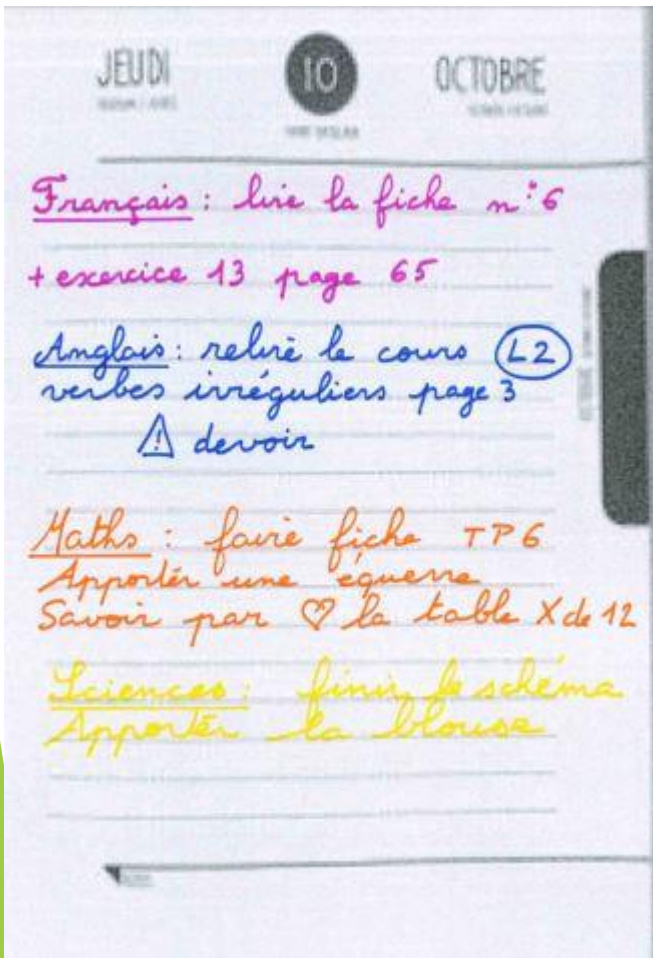 JEUDI 10 OCTOBRE
Français : lire la fiche n°6
+ exercice 13 page 65
Anglais : relire le cours (L2)
verbes irréguliers page 3
⚠ devoir
Maths : faire fiche TP6
Apporter une équerre
Savoir par ♡ la table X de 12
Sciences : finir le schéma
Apporter la blouse